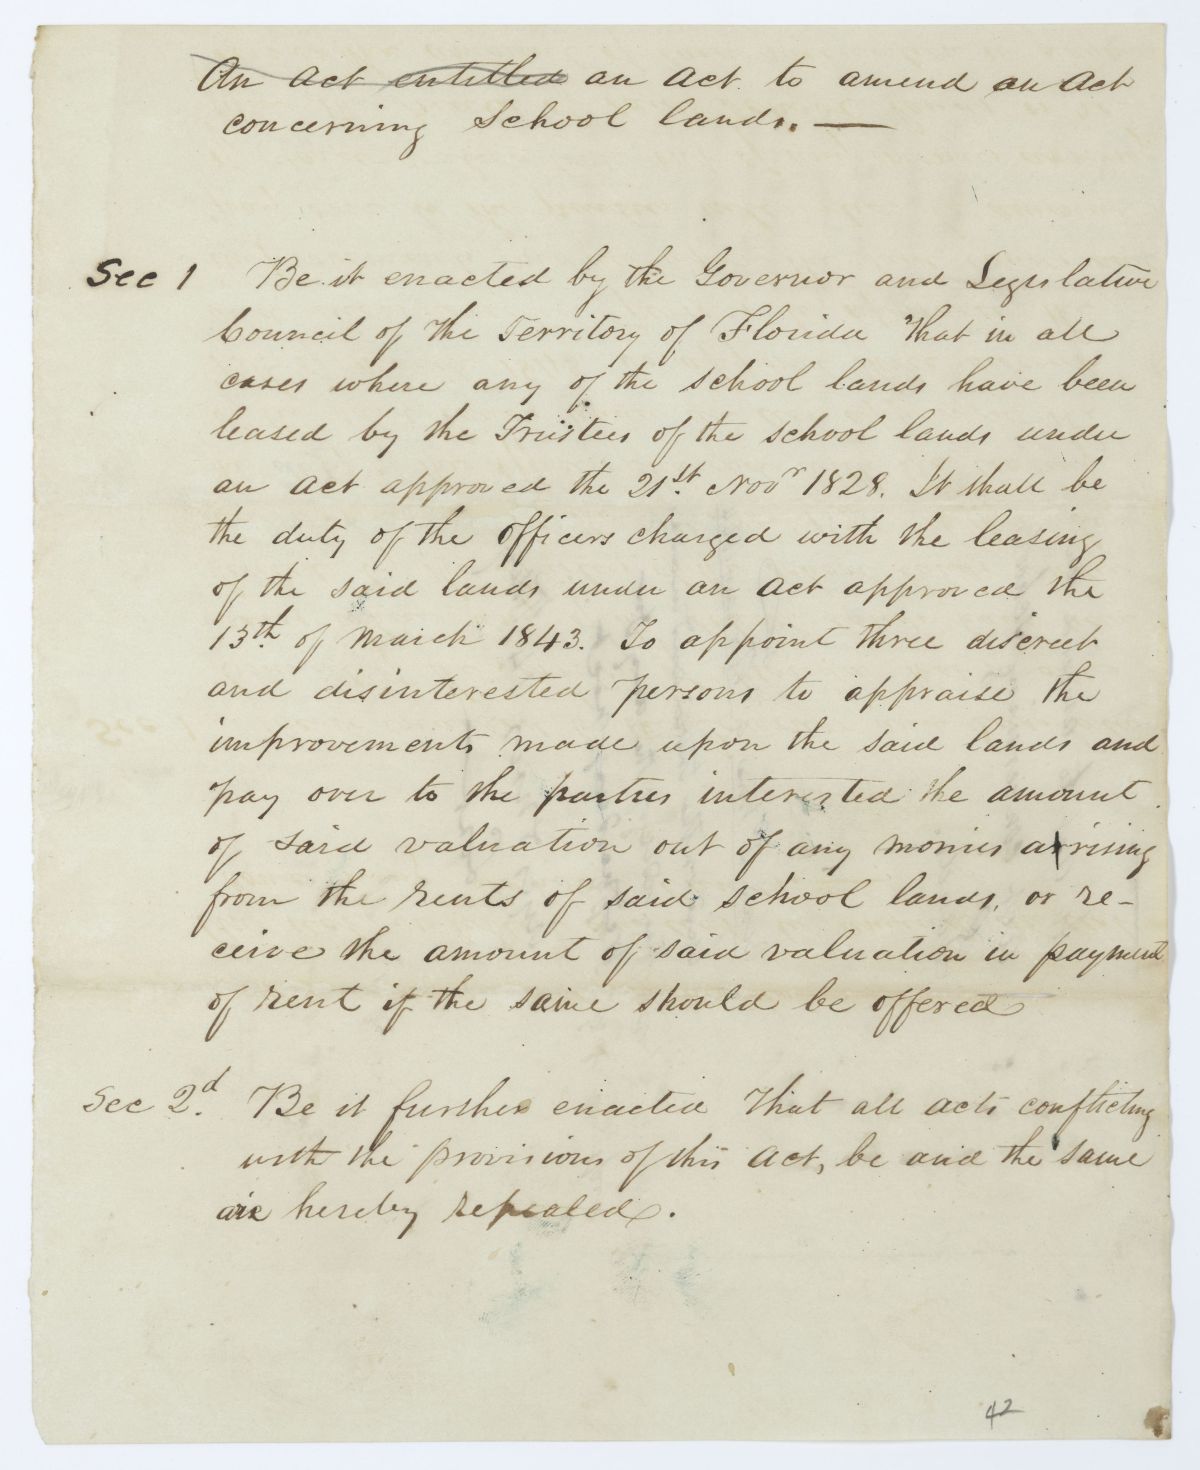 An act entitled an act to amend an act
concerning School lands. —
Sec 1 Be it enacted by the Governor and Legislative
Council of the Territory of Florida That in all
cases where any of the school lands have been
leased by the Trustees of the school lands under
an act approved the 21st. Novr 1828. It shall be
the duty of the officers charged with the leasing
of the said lands under an act approved the
13th. of March 1843. To appoint three discreet
and disinterested persons to appraise the
improvements made upon the said lands and
pay over to the parties interested the amount
of said valuation out of any monies arising
from the rents of said school lands, or re-
ceive the amount of said valuation in payment
of rent if the same should be offered
Sec 2d. Be it further enacted That all acts conflicting
with the provisions of this act, be and the same
are hereby repealed.
42